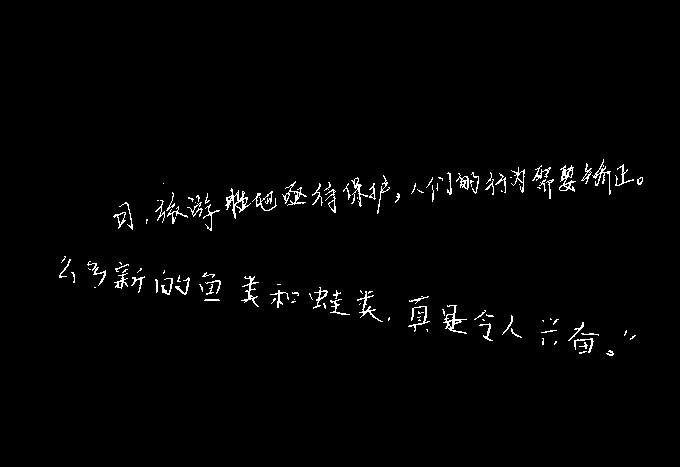 司,旅游胜地亟待保护,人们的行为需要矫正。
么多新的鱼类和蛙类,真是令人兴奋。”